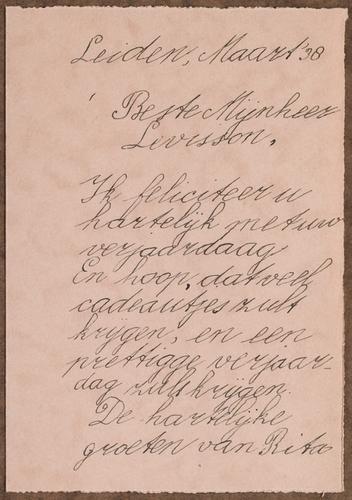 Leiden, Maart '38
Beste Mijnheer
Levisson,
Ik feliciteer u
hartelijk met uw
verjaardaag
En hoop, dat veel
cadeautjes zult
krijgen, en een
prettigge verjaar-
dag zult krijgen.
De hartelijke
groeten van Rita